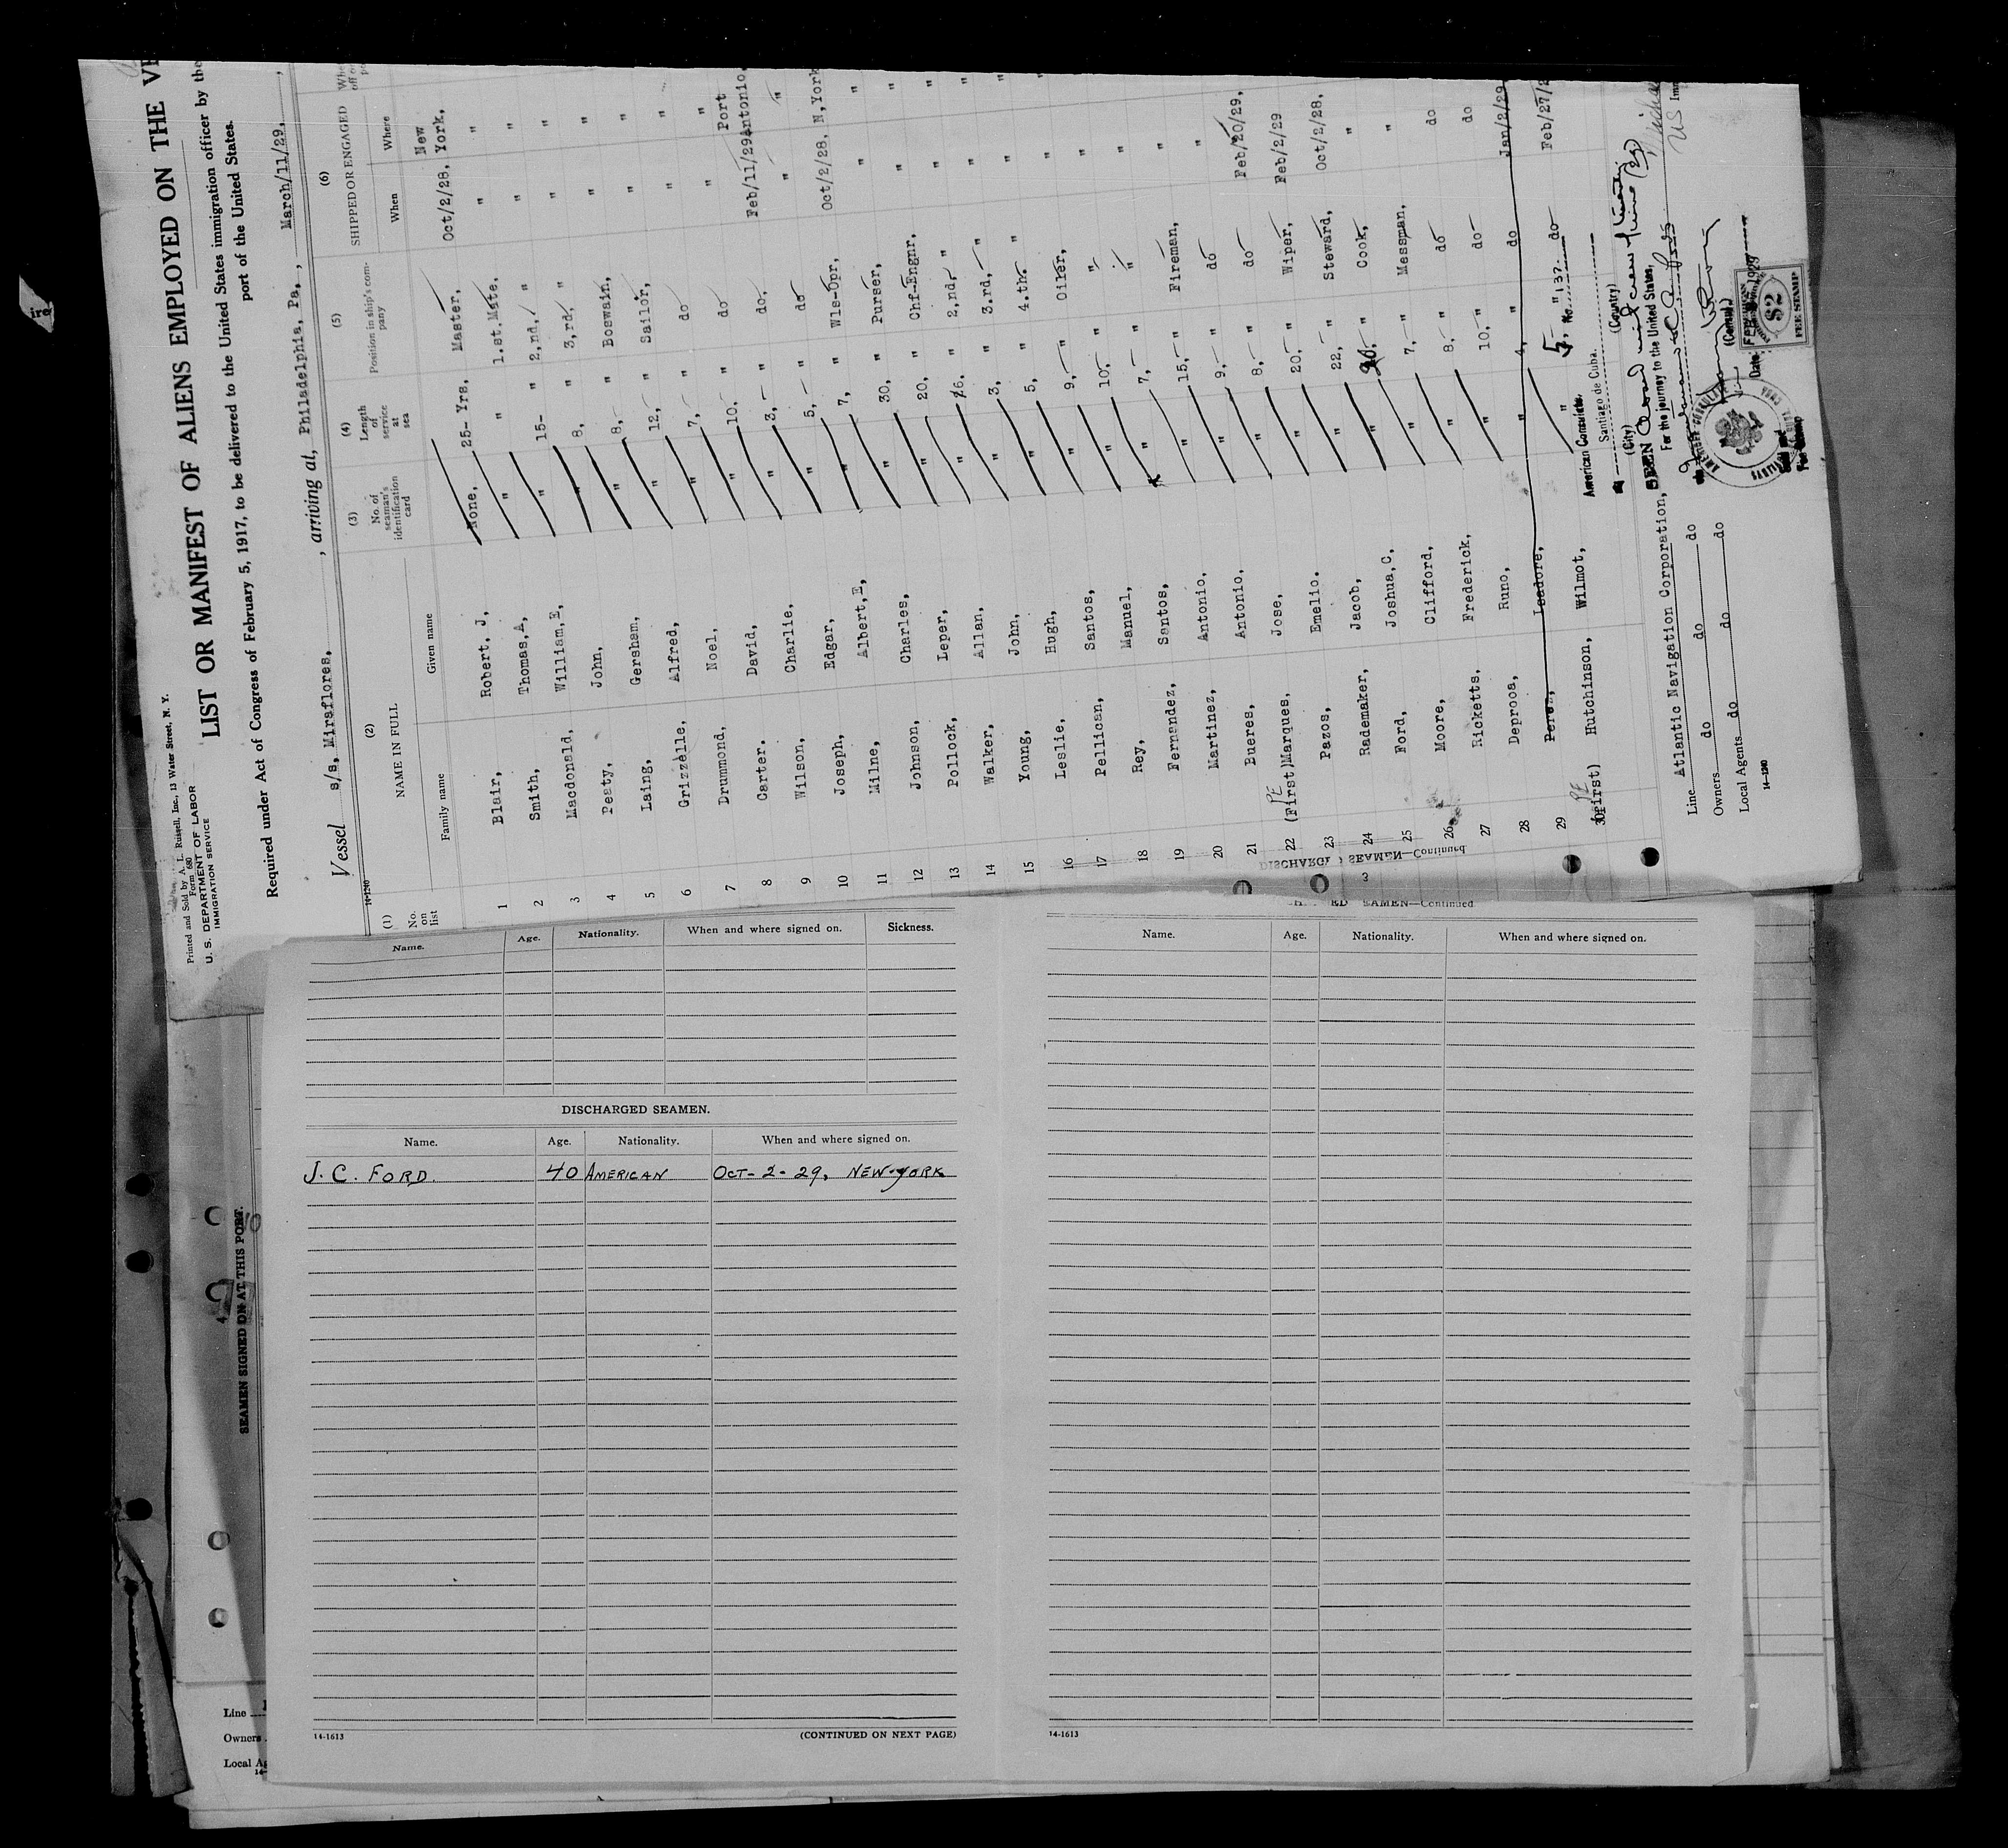 Printed and Sold by A. L. Russell, Inc., 13 Water Street, N. Y.
Form 680
U. S. DEPARTMENT OF LABOR
IMMIGRATION SERVICE
LIST OR MANIFEST OF ALIENS EMPLOYED ON THE
Required under Act of Congress of February 5, 1917, to be delivered to the United States immigration officer by the
port of the United States.
Vessel s/s, Miraflores, , arriving at, Philadelphia, Pa., , March/11/29, ,
14-1240
(1) No. on list (2) NAME IN FULL (3) No. of seaman's identification card (4) Length of service at sea (5) Position in ship's company (6) SHIPPED OR ENGAGED
Family name Given name When Where
1 Blair, Robert, J, None, 25- Yrs. Master, Oct/2/28, New York,
2 Smith, Thomas, A, " " 1.st.Mate. " "
3 Macdonald, William, E, " 15- " 2,nd, " " "
4 Peaty, John, " 8, " 3,rd, " " "
5 Laing, Gersham, " 8,- " Boswain, " "
6 Grizzelle, Alfred, " 12,- " Sailor, " "
7 Drummond, Noel, " 7,- " do " "
8 Carter. David, " 10.- " do " "
9 Wilson, Charlie, " 3,- " do. Feb/11/29 Port Antonio,
10 Joseph, Edgar, " 5,- " do " "
11 Milne, Albert, E, " 7, " Wls-Opr, Oct/2/28, N,York
12 Johnson, Charles, " 30, " Purser, " "
13 Pollock, Leper, " 20, " Chf-Engnr. " "
14 Walker, Allan, " 16, " 2,nd, " " "
15 Young, John, " 3, " 3.rd,- " " "
16 Leslie, Hugh, " 5, " 4.th. " " "
17 Pellican, Santos, " 9,- " Oiler, "
18 Rey, Manuel, " 10,- " " "
19 Fernandez, Santos, " 7,- " " "
20 Martinez, Antonio, " 15,- " Fireman, "
21 Bueres, Antonio, " 9,- " do "
22 (First) PE Marques, Jose, " 8,- " do Feb/20/29,
23 Pazos, Emelio. " 20,- " Wiper, Feb/2/29
24 Rademaker, Jacob, " 22,- " Steward, Oct/2/28,
25 Ford, Joshua, C, " 20.- " Cook, "
26 Moore, Clifford, " 7,- " Messman, "
27 Ricketts. Frederick, " 8,- " do do
28 Deproca, Runo, " 10.- " do do
29 Perez, Isadore, " 4, " do Jan/2/29
30 (First) PE Hutchinson, Wilmot, " 5, " do Feb/27/2
No. 137.
American Consulate.
Santiago de Cuba.
(City) (Country)
SEEN
For the journey to the United States,
(Consul)
Date
$2
FEE STAMP
Line Atlantic Navigation Corporation,
Owners do do do
Local Agents do do do
14-1240
DISCHARGED SEAMEN—Continued
3
Name. Age. Nationality. When and where signed on. Sickness.
DISCHARGED SEAMEN.
Name. Age. Nationality. When and where signed on.
J. C. FORD. 40 AMERICAN OCT- 2- 29, NEW-YORK
14-1613 (CONTINUED ON NEXT PAGE)
SEAMEN—Continued
Name. Age. Nationality. When and where signed on.
14-1613
SEAMEN SIGNED ON AT THIS PORT.
Line
Owners
Local